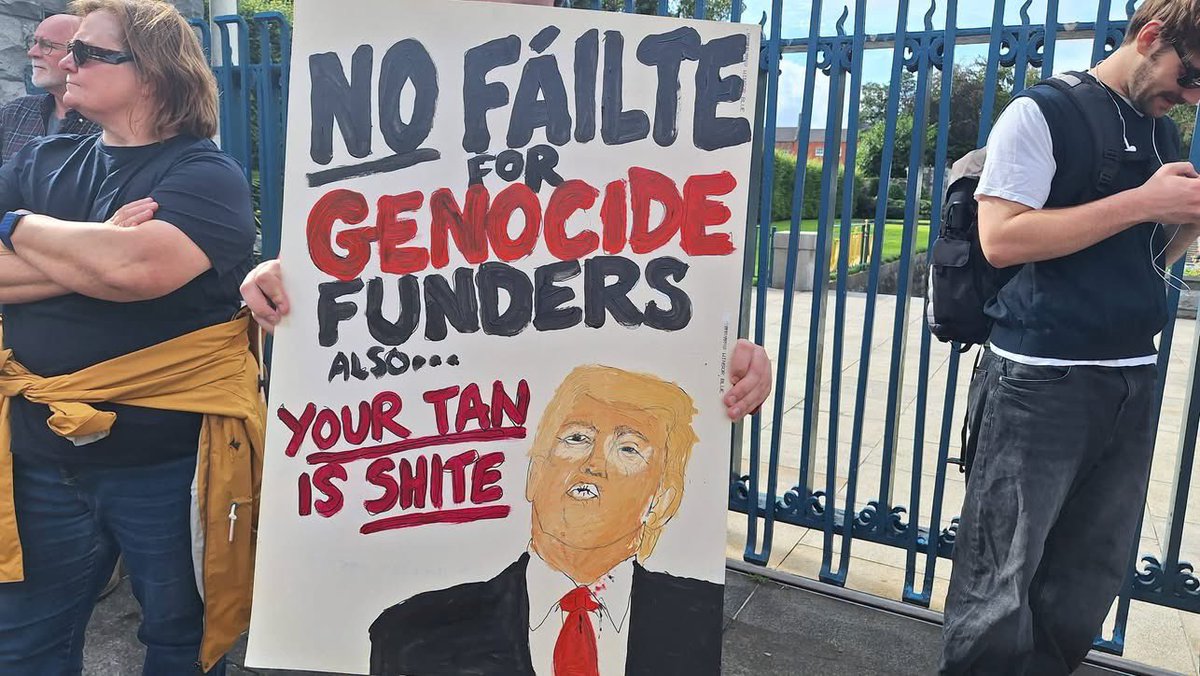 NO FÁILTE
FOR
GENOCIDE
FUNDERS
ALSO...
YOUR TAN
IS SHITE